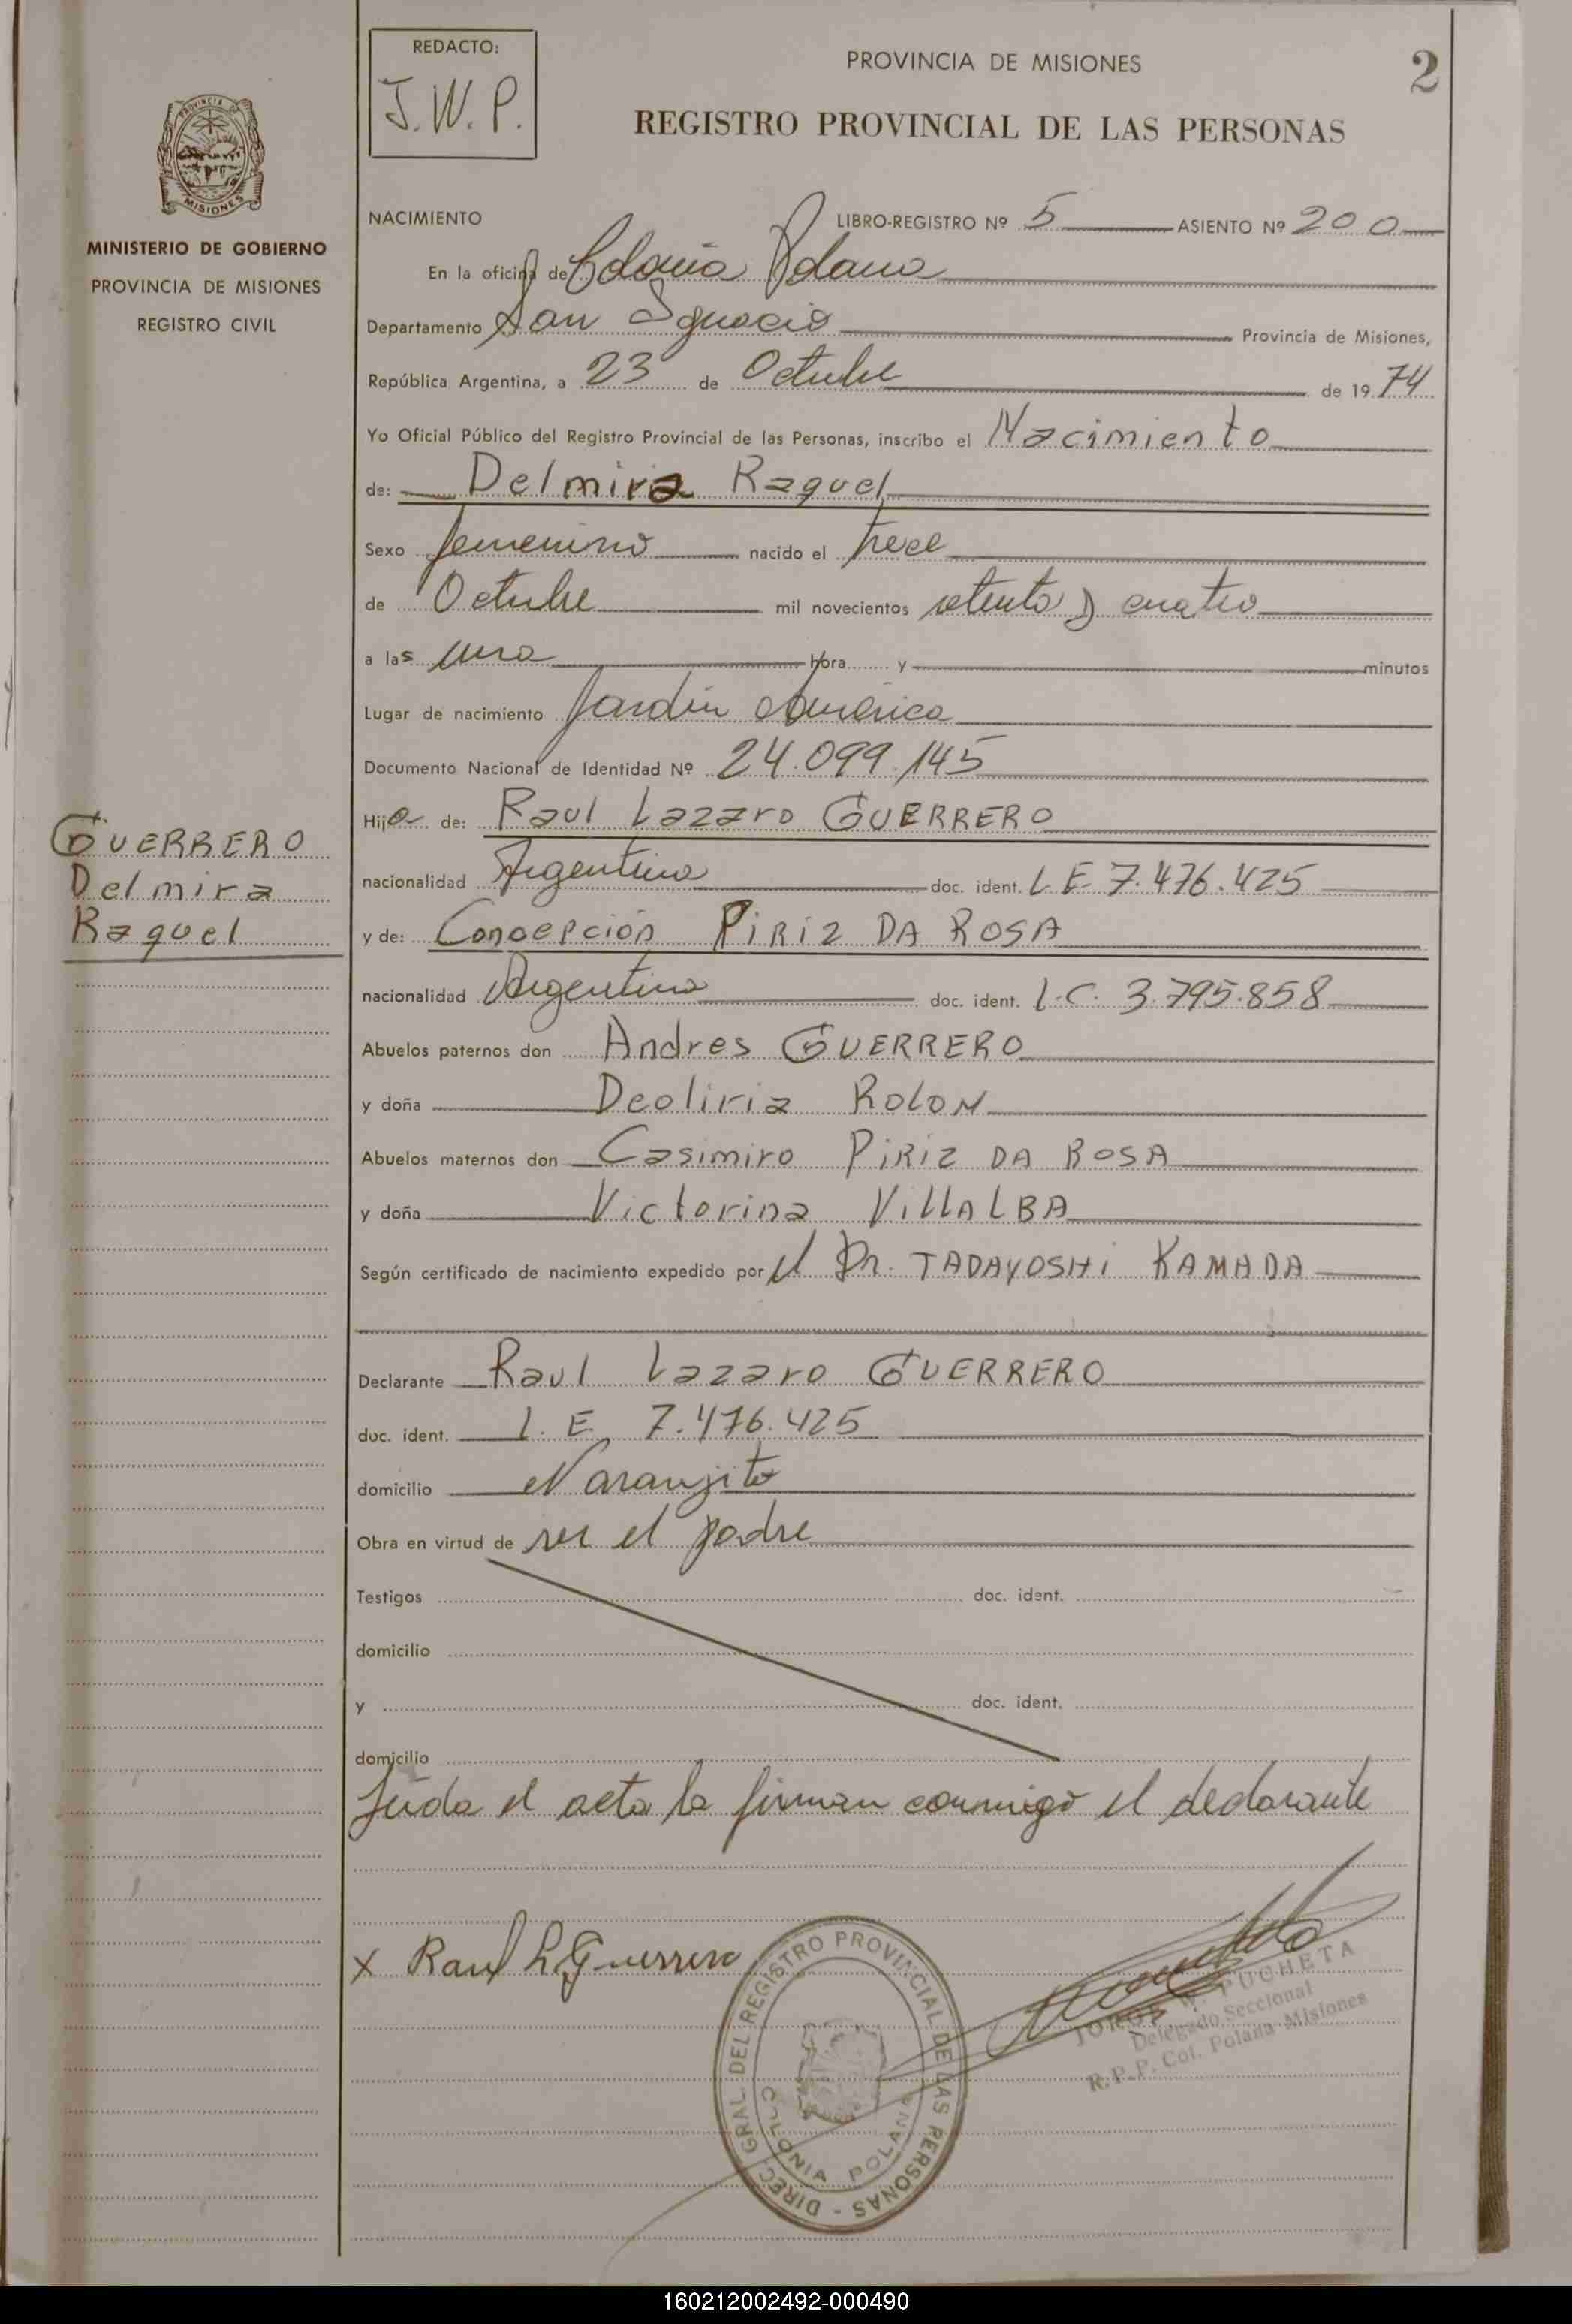 REDACTO:
J.W.P.
PROVINCIA DE MISIONES
2
REGISTRO PROVINCIAL DE LAS PERSONAS
PROVINCIA DE
MISIONES
MINISTERIO DE GOBIERNO
PROVINCIA DE MISIONES
REGISTRO CIVIL
NACIMIENTO LIBRO-REGISTRO Nº 5 ASIENTO Nº 200
En la oficina de Colonia Polana
Departamento San Ignacio Provincia de Misiones,
República Argentina, a 23 de Octubre de 1974
Yo Oficial Público del Registro Provincial de las Personas, inscribo el Nacimiento
de: Delmira Raquel
Sexo femenino nacido el trece
de Octubre mil novecientos setenta y cuatro
a las una Hora y minutos
Lugar de nacimiento Jardín América
Documento Nacional de Identidad Nº 24.099.145
Hija de: Raul Lazaro GUERRERO
GUERRERO
Delmira
Raquel
nacionalidad Argentina doc. ident. L.E. 7.476.425
y de: Concepción PiRiz DA ROSA
nacionalidad Argentina doc. ident. L.C. 3.795.858
Abuelos paternos don Andres GUERRERO
y doña Deoliria ROLON
Abuelos maternos don Casimiro PiRiz DA ROSA
y doña Victorina VillALBA
Según certificado de nacimiento expedido por el Dr. TADAYOSHi KAMADA
Declarante Raul Lazaro GUERRERO
doc. ident. L.E. 7.476.425
domicilio Naranjito
Obra en virtud de ser el padre
Testigos doc. ident.
domicilio
y doc. ident.
domicilio
Leída el acta la firman conmigo el declarante
x Raul L Guerrero
DIREC. GRAL DEL REGISTRO PROVINCIAL DE LAS PERSONAS -
COLONIA POLANA
JORGE W. PUCHETA
Delegado Seccional
R.P.P. Col. Polana-Misiones
160212002492-000490